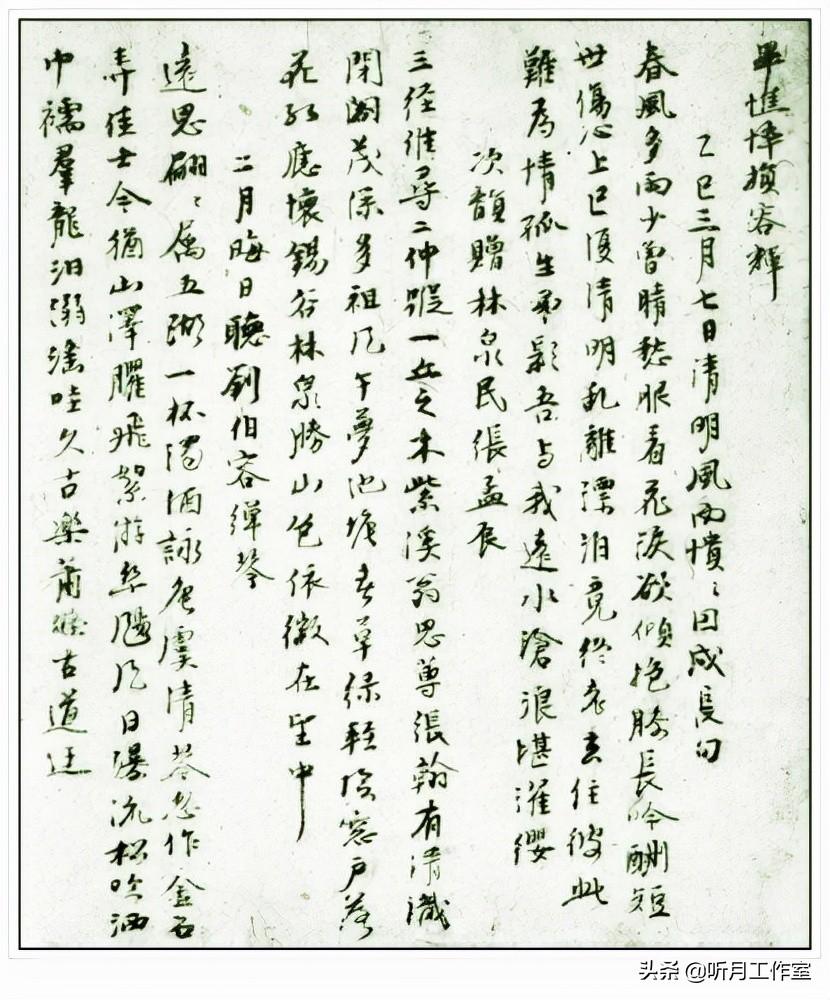 畢憔悴損容輝
乙巳三月七日清明風雨憒〻因成長句
春風多雨少曾晴愁眼看花淚欲傾抱膝長吟酬短
世傷心上巳復清明乱離漂泊竟終老去住彼此
難為情孤生弔影吾與我遠水滄浪堪濯纓
次韻贈林泉民張孟辰
三径誰尋二仲蹤一丘之木紫溪翁思蓴張翰有清識
閉閤茂深多祖風午夢池塘春草綠輕陰窓戶落
花紅應懷錫谷林泉勝山色依微在望中
二月晦日聽劉伯容彈琴
遠思翩〻属五湖一杯濁酒詠唐虞清琴忽作金石
弄佳士今猶山澤臞飛絮游絲颺風日瀑流松吹洒
巾襦羣龍汨溺滛哇久古樂蕭條古道迂
头条 @听月工作室